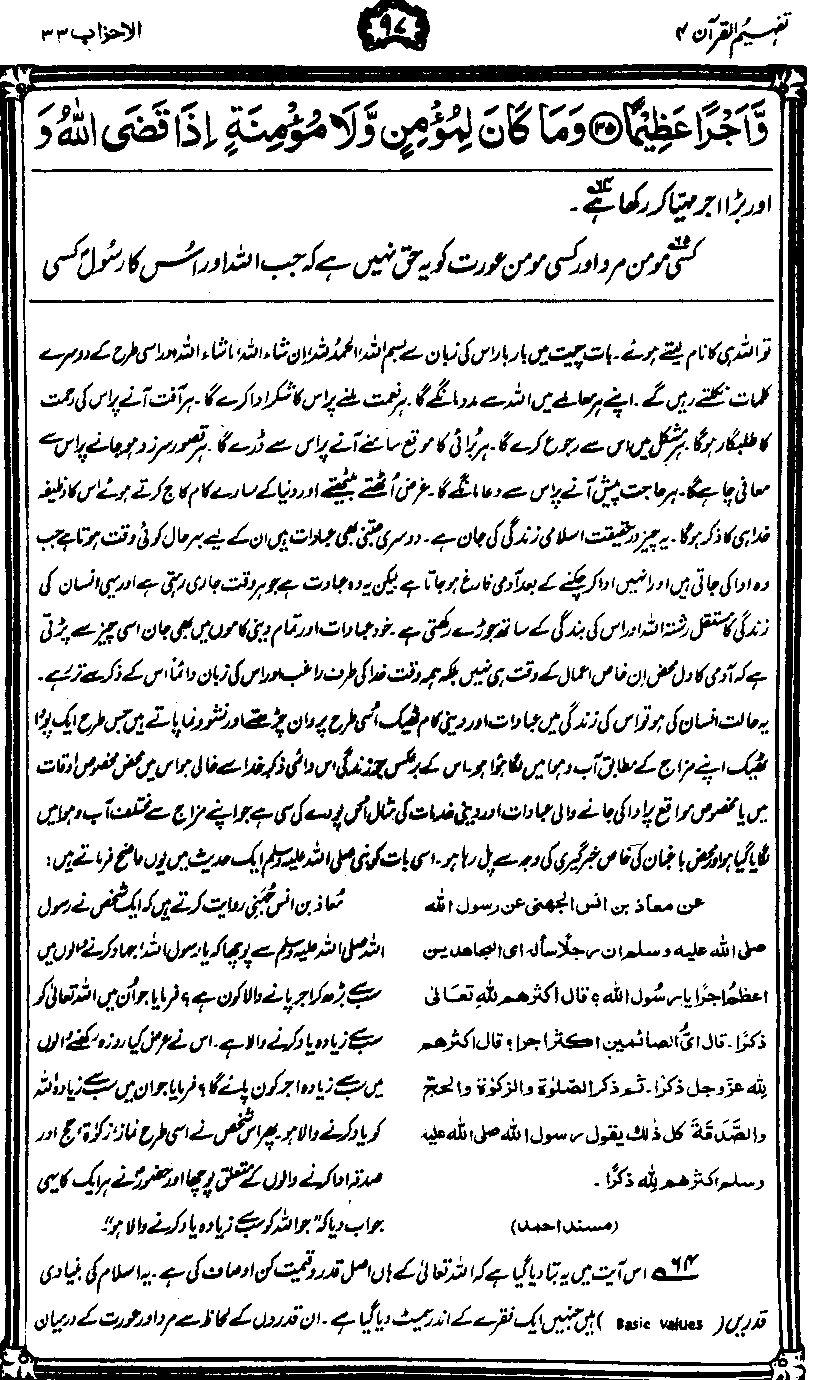 تفہیم القرآن ۴
۹۷
الاحزاب ۳۳
وَّاَجْرًا عَظِيْمًا ﴿۳۵﴾ وَمَا كَانَ لِمُؤْمِنٍ وَّلَا مُؤْمِنَةٍ اِذَا قَضَى اللّٰهُ وَ
اور بڑا اجر مہیّا کر رکھا ہے۶۴۔
کسی۶۵ مومن مرد اور کسی مومن عورت کو یہ حق نہیں ہے کہ جب اللہ اور اُس کا رسُولؐ کسی
تو اللہ ہی کا نام لیتے ہوئے۔ بات چیت میں بار بار اس کی زبان سے بسم اللہ، الحمد للہ، ان شاء اللہ، ماشاء اللہ اور اسی طرح کے دوسرے
کلمات نکلتے رہیں گے۔ اپنے ہر معاملے میں اللہ سے مدد مانگے گا۔ ہر نعمت ملنے پر اس کا شکر ادا کرے گا۔ ہر آفت آنے پر اس کی رحمت
کا طلبگار ہوگا۔ ہر مشکل میں اس سے رجوع کرے گا۔ ہر بُرائی کا موقع سامنے آنے پر اس سے ڈرے گا۔ ہر قصور سرزد ہو جانے پر اس سے
معافی چاہے گا۔ ہر حاجت پیش آنے پر اس سے دعا مانگے گا۔ غرض اُٹھتے بیٹھتے اور دنیا کے سارے کام کاج کرتے ہوئے اس کا وظیفہ
خدا ہی کا ذکر ہوگا۔ یہ چیز در حقیقت اسلامی زندگی کی جان ہے۔ دوسری جتنی بھی عبادات ہیں ان کے لیے بہر حال کوئی وقت ہوتا ہے جب
وہ ادا کی جاتی ہیں اور انہیں ادا کر چکنے کے بعد آدمی فارغ ہو جاتا ہے لیکن یہ وہ عبادت ہے جو ہر وقت جاری رہتی ہے اور یہی انسان کی
زندگی کا مستقل رشتہ اللہ اور اس کی بندگی کے ساتھ جوڑے رکھتی ہے۔ خود عبادات اور تمام دینی کاموں میں بھی جان اسی چیز سے پڑتی
ہے کہ آدمی کا دل محض ان خاص اعمال کے وقت ہی نہیں بلکہ ہمہ وقت خدا کی طرف راغب اور اس کی زبان دائماً اس کے ذکر سے تر رہے۔
یہ حالت انسان کی ہو تو اس کی زندگی میں عبادات اور دینی کام ٹھیک اُسی طرح پروان چڑھتے اور نشو و نما پاتے ہیں جس طرح ایک پودا
ٹھیک اپنے مزاج کے مطابق آب و ہوا میں لگا ہوا ہو۔ اس کے برعکس جو زندگی اس دائمی ذکرِ خدا سے خالی ہو اس میں محض مخصوص اوقات
میں یا مخصوص مواقع پر ادا کی جانے والی عبادات اور دینی خدمات کی مثال اُس پودے کی سی ہے جو اپنے مزاج سے مختلف آب و ہوا میں
لگایا گیا ہو اور محض باغبان کی خاص خبرگیری کی وجہ سے پل رہا ہو۔ اسی بات کو نبی صلی اللہ علیہ وسلم ایک حدیث میں یوں واضح فرماتے ہیں:
عن معاذ بن انس الجھنی عن رسول اللہ
صلی اللہ علیہ وسلم ان رجلًا سألہ ای المجاھدین
اعظم اجرًا یا رسُول اللہ؟ قال اکثرھم للہِ تعالیٰ
ذکرًا۔ قال ایُّ الصائمین اکثر اجرا؟ قال اکثرھم
للہ عزّ وجل ذکرًا۔ ثم ذکر الصّلوٰۃ والزکوٰۃ والحجّ
والصَّدَقَۃَ کل ذٰلک یقول رسول اللہ صلی اللہ علیہ
وسلم اکثرھم للہِ ذکرًا۔
(مسند احمد)
مُعاذ بن انس جُہَنِی روایت کرتے ہیں کہ ایک شخص نے رسول
اللہ صلی اللہ علیہ وسلم سے پوچھا کہ یا رسول اللہ، جہاد کرنے والوں میں
سب سے بڑھ کر اجر پانے والا کون ہے؟ فرمایا جو اُن میں اللہ تعالیٰ کو
سب سے زیادہ یاد کرنے والا ہے۔ اس نے عرض کیا روزہ رکھنے والوں
میں سب سے زیادہ اجر کون پائے گا؟ فرمایا جو ان میں سب سے زیادہ اللہ
کو یاد کرنے والا ہو۔ پھر اس شخص نے اسی طرح نماز، زکوٰۃ، حج اور
صدقہ ادا کرنے والوں کے متعلق پوچھا اور حضورؐ نے ہر ایک کا یہی
جواب دیا کہ "جو اللہ کو سب سے زیادہ یاد کرنے والا ہو"۔
۶۴ اس آیت میں یہ بتا دیا گیا ہے کہ اللہ تعالیٰ کے ہاں اصل قدر و قیمت کن اوصاف کی ہے۔ یہ اسلام کی بنیادی
قدریں (Basic values) ہیں جنہیں ایک فقرے کے اندر سمیٹ دیا گیا ہے۔ ان قدروں کے لحاظ سے مرد اور عورت کے درمیان